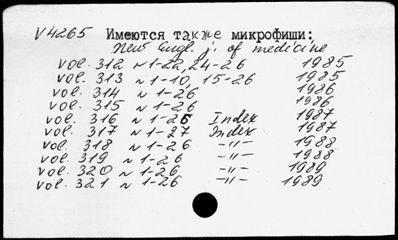 V4265 Имеются также микрофиши:
New Engl. j. of medicine
vol. 312 N 1-22, 24-26 1985
vol. 313 N 1-10, 15-26 1985
vol. 314 N 1-26 1986
vol. 315 N 1-26 1986
vol. 316 N 1-26 Index 1987
vol. 317 N 1-27 Index 1987
vol. 318 N 1-26 -"- 1988
vol. 319 N 1-26 -"- 1988
vol. 320 N 1-26 -"- 1989
vol. 321 N 1-26 -"- 1989